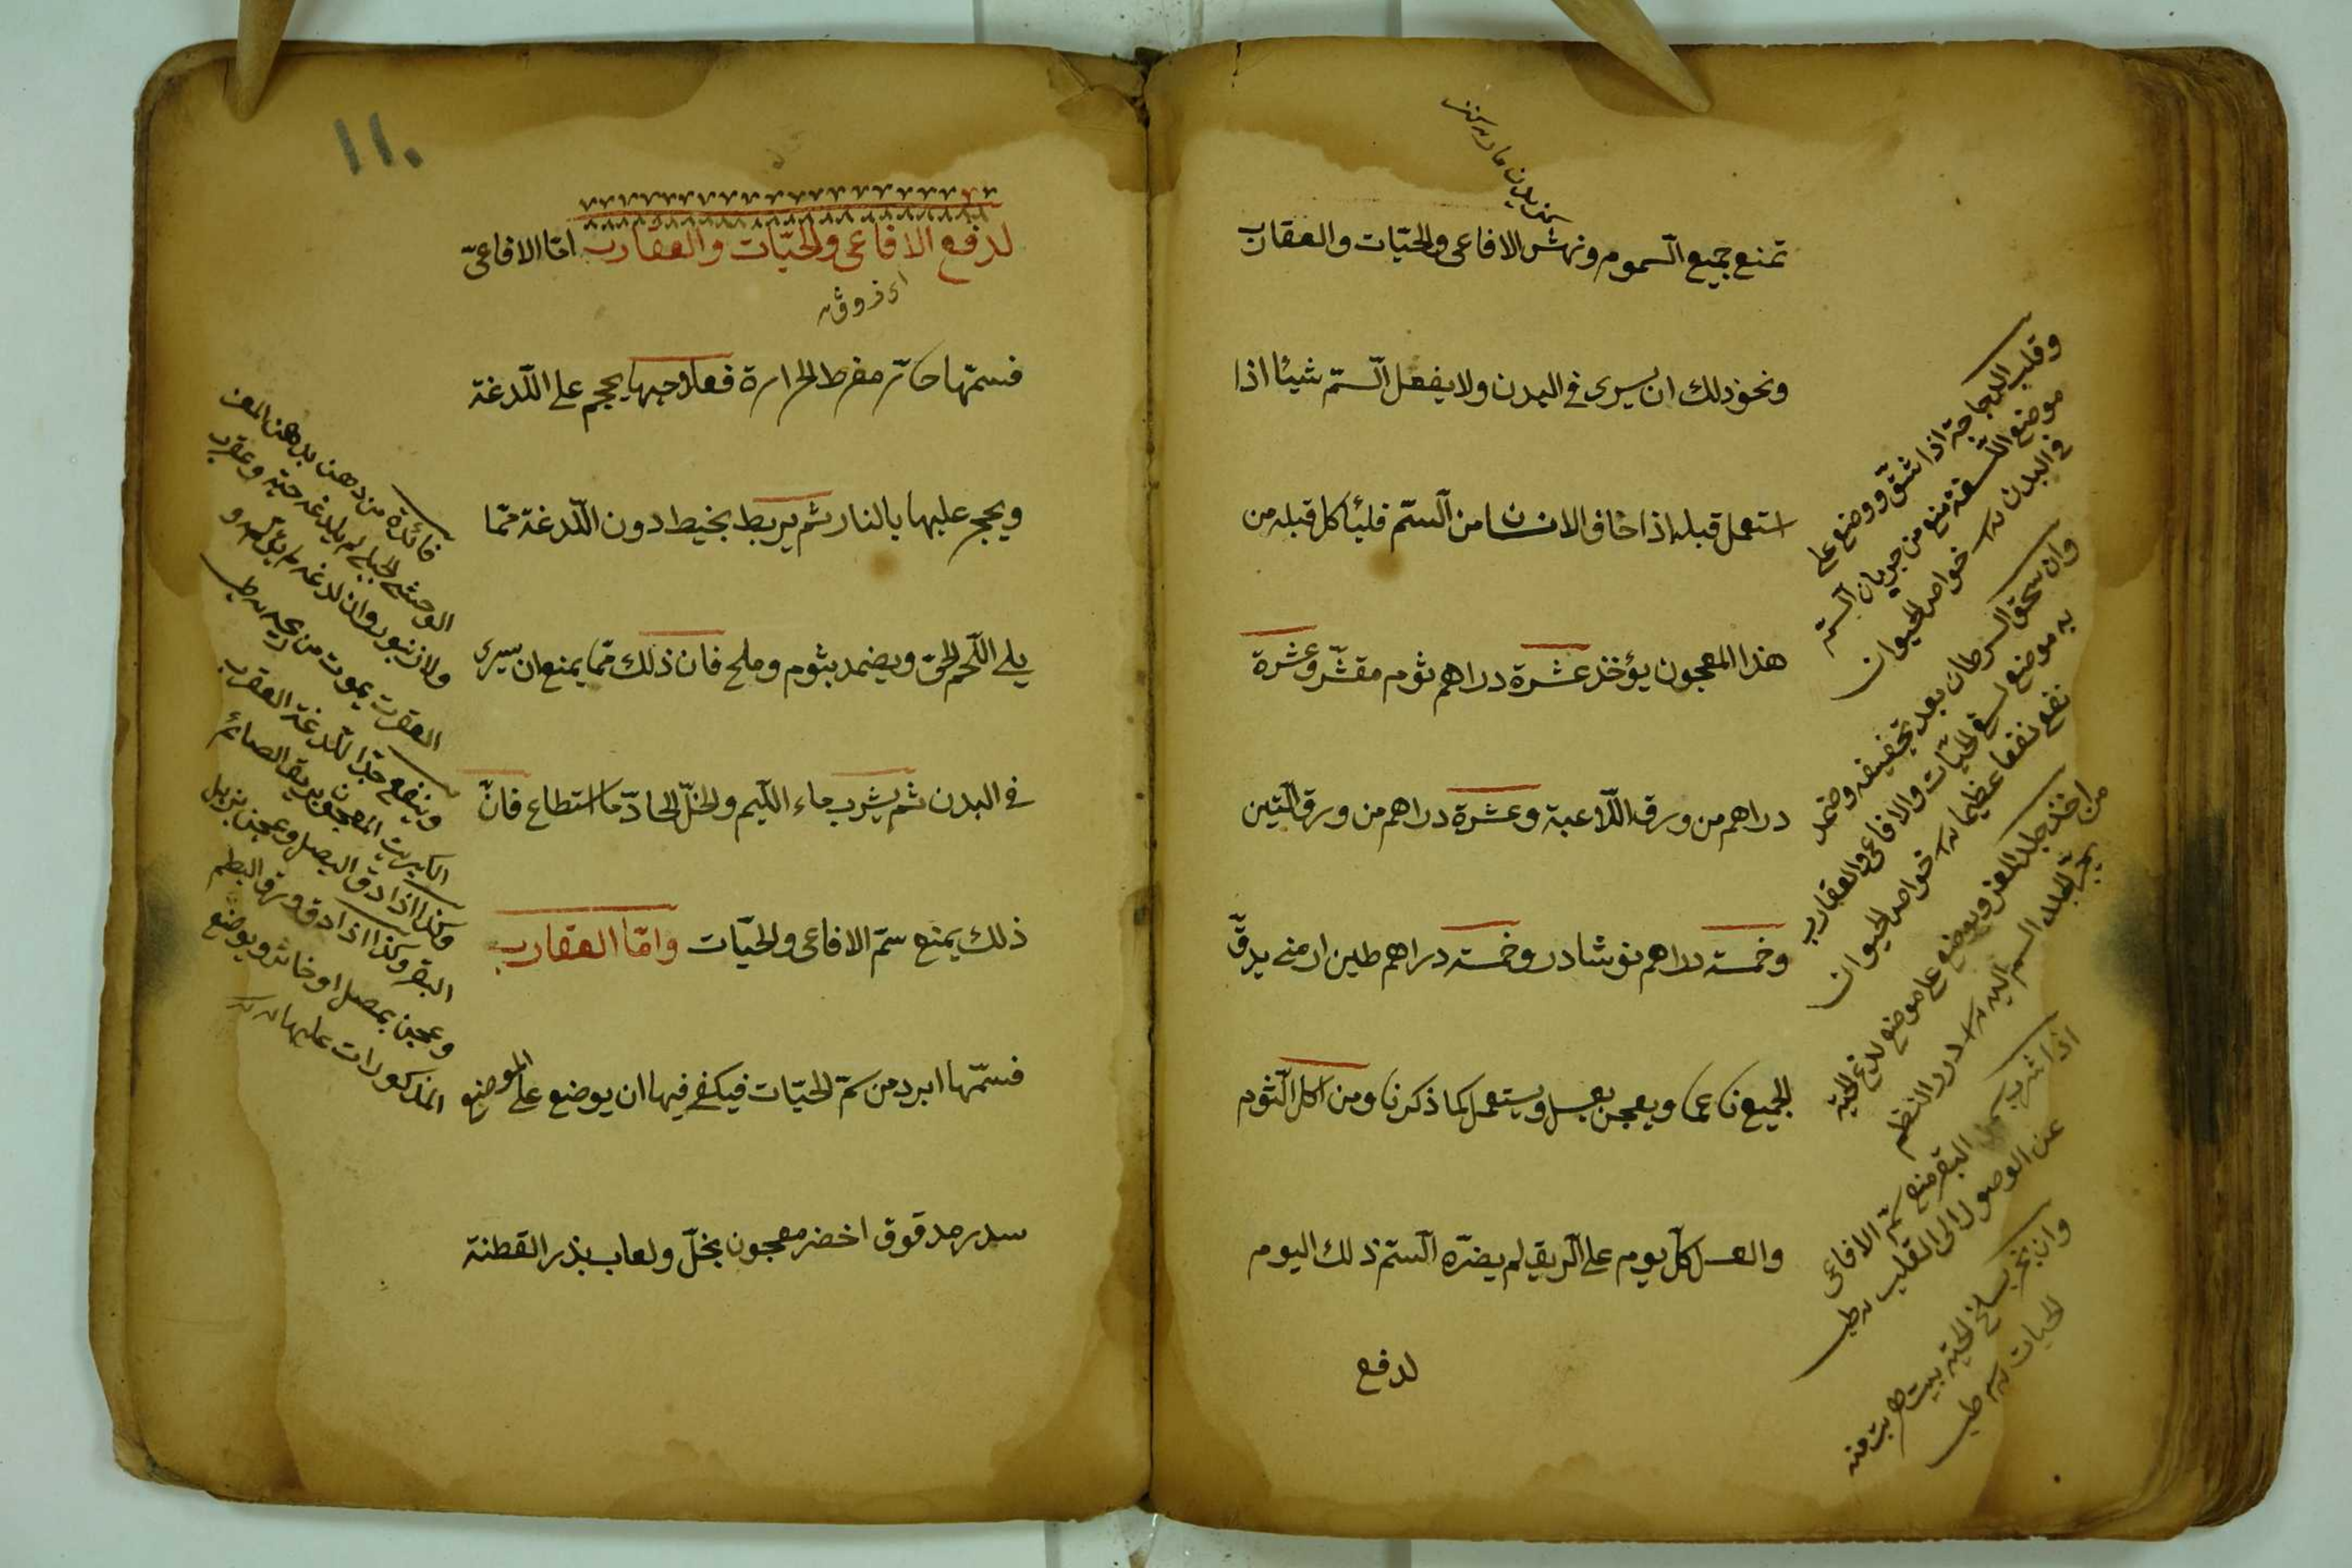 تمنع جميع السّموم ونهش الافاعى والحيّات والعقارب
ونحو ذلك ان يسرى فى البدن ولا يفعل السّمّ شيئا اذا
استعمل قبله اذا خاف الانسان من السّمّ فليأكل قبله من
هذا المعجون يؤخذ عشرة دراهم ثوم مقشّر وعشرة
دراهم من ورق اللّاعبة وعشرة دراهم من ورق التّين
وخمسة دراهم نوشادر وخمسة دراهم طين ارمنى يدقّ
الجميع ناعما ويعجن بعسل ويستعمل كما ذكرنا ومن اكل الثّوم
والعسل كلّ يوم على الرّيق لم يضرّه السّمّ ذلك اليوم
لدفع
وقلب الدجاجة اذا شقّ ووضع على
موضع اللّسعة منع من جريان السّمّ
فى البدن خواص الحيوان
وان سحق السرطان بعد تجفيفه وضمد
به موضع لسع الحيّات والافاعى والعقارب
نفع نفعا عظيما خواص الحيوان
من اخذ جلد المعز ويوضع على موضع لدغ الحيّة
يجرّ الجلد السم اليه درر النظم
اذا شرب سمن البقر منع سمّ الافاعى
عن الوصول الى القلب طب
وان بخر بسلخ الحيّة بيت هربت منه
الحيات طب
١١٠
لدفع الافاعى والحيّات والعقارب امّا الافاعىّ
فسمّها حارّ مفرط الحرارة فعلاجها يحجم على اللّدغة
ويحجر عليها بالنار ثم يربط بخيط دون اللّدغة ممّا
يلى اللّحم الحىّ ويضمد بثوم وملح فان ذلك ممّا يمنع ان يسرى
فى البدن ثم يشرب ماء اللّيم والخلّ الحادّ ما استطاع فانّ
ذلك يمنع سمّ الافاعى والحيّات وامّا العقارب
فسمّها ابرد من سمّ الحيّات فيكفى فيها ان يوضع على الموضع
سدر مدقوق اخضر معجون بخلّ ولعاب بذر القطنة
فائدة من دهن بدهن المعز
الوحشى الجبلى لم يلدغه حيّة وعقرب
ولا زنبور وان لدغه لم يؤلمه و
العقرب يموت من ريحه طب
وينفع جدّا للدغة العقرب
الكبريت المعجون بريق الصائم
وكذا اذا دق البصل وعجن بزبل
البقر وكذا اذا دق ورق البطم
وعجن بمصل او خاثر ويوضع
المذكورات عليها